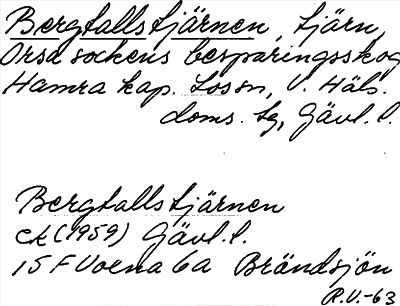 Bergtallstjärnen, tjärn,
Orsa sockens besparingsskog
Hamra kap. Lossn, V. Häls.
doms. sg, Gävl. l.
Bergtallstjärnen
ek (1959) Gävl. l.
15 F Voxna 6a Brändsjön
R.V.-63